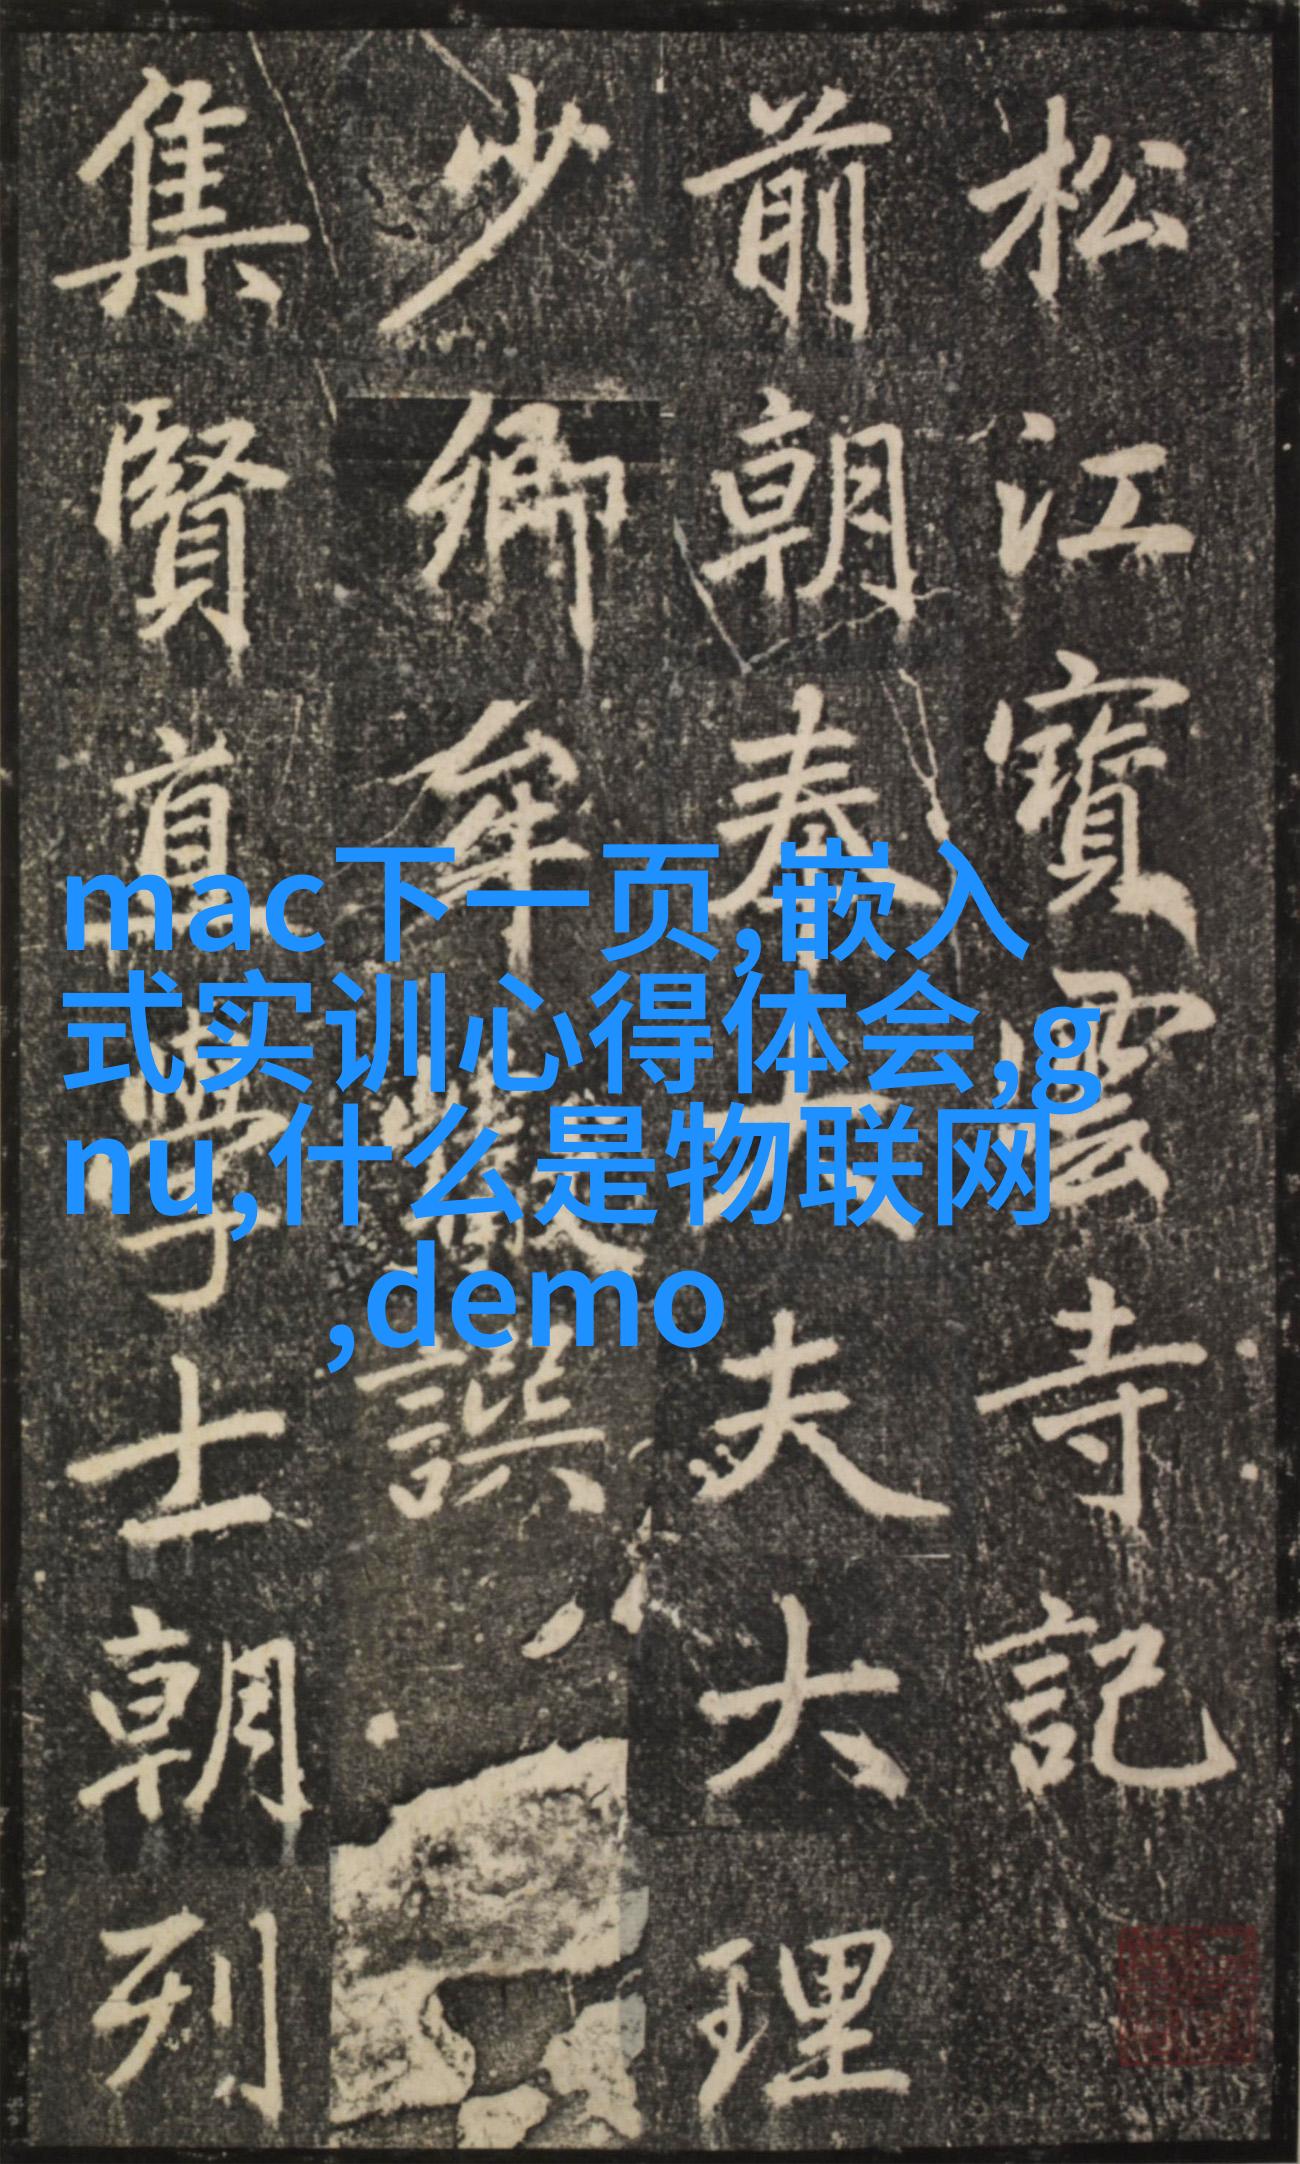 松江寶雲寺記
前朝奉大夫大理
少卿牟巘譔
集賢直學士朝列
mac下一页,嵌入
式实训心得体会,g
nu,什么是物联网
,demo